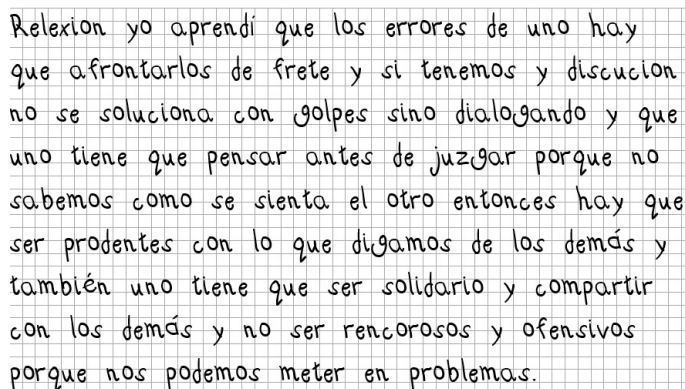 Relexion yo aprendí que los errores de uno hay
que afrontarlos de frete y si tenemos y discucion
no se soluciona con golpes sino dialogando y que
uno tiene que pensar antes de juzgar porque no
sabemos como se sienta el otro entonces hay que
ser prodentes con lo que digamos de los demás y
también uno tiene que ser solidario y compartir
con los demás y no ser rencorosos y ofensivos
porque nos podemos meter en problemas.